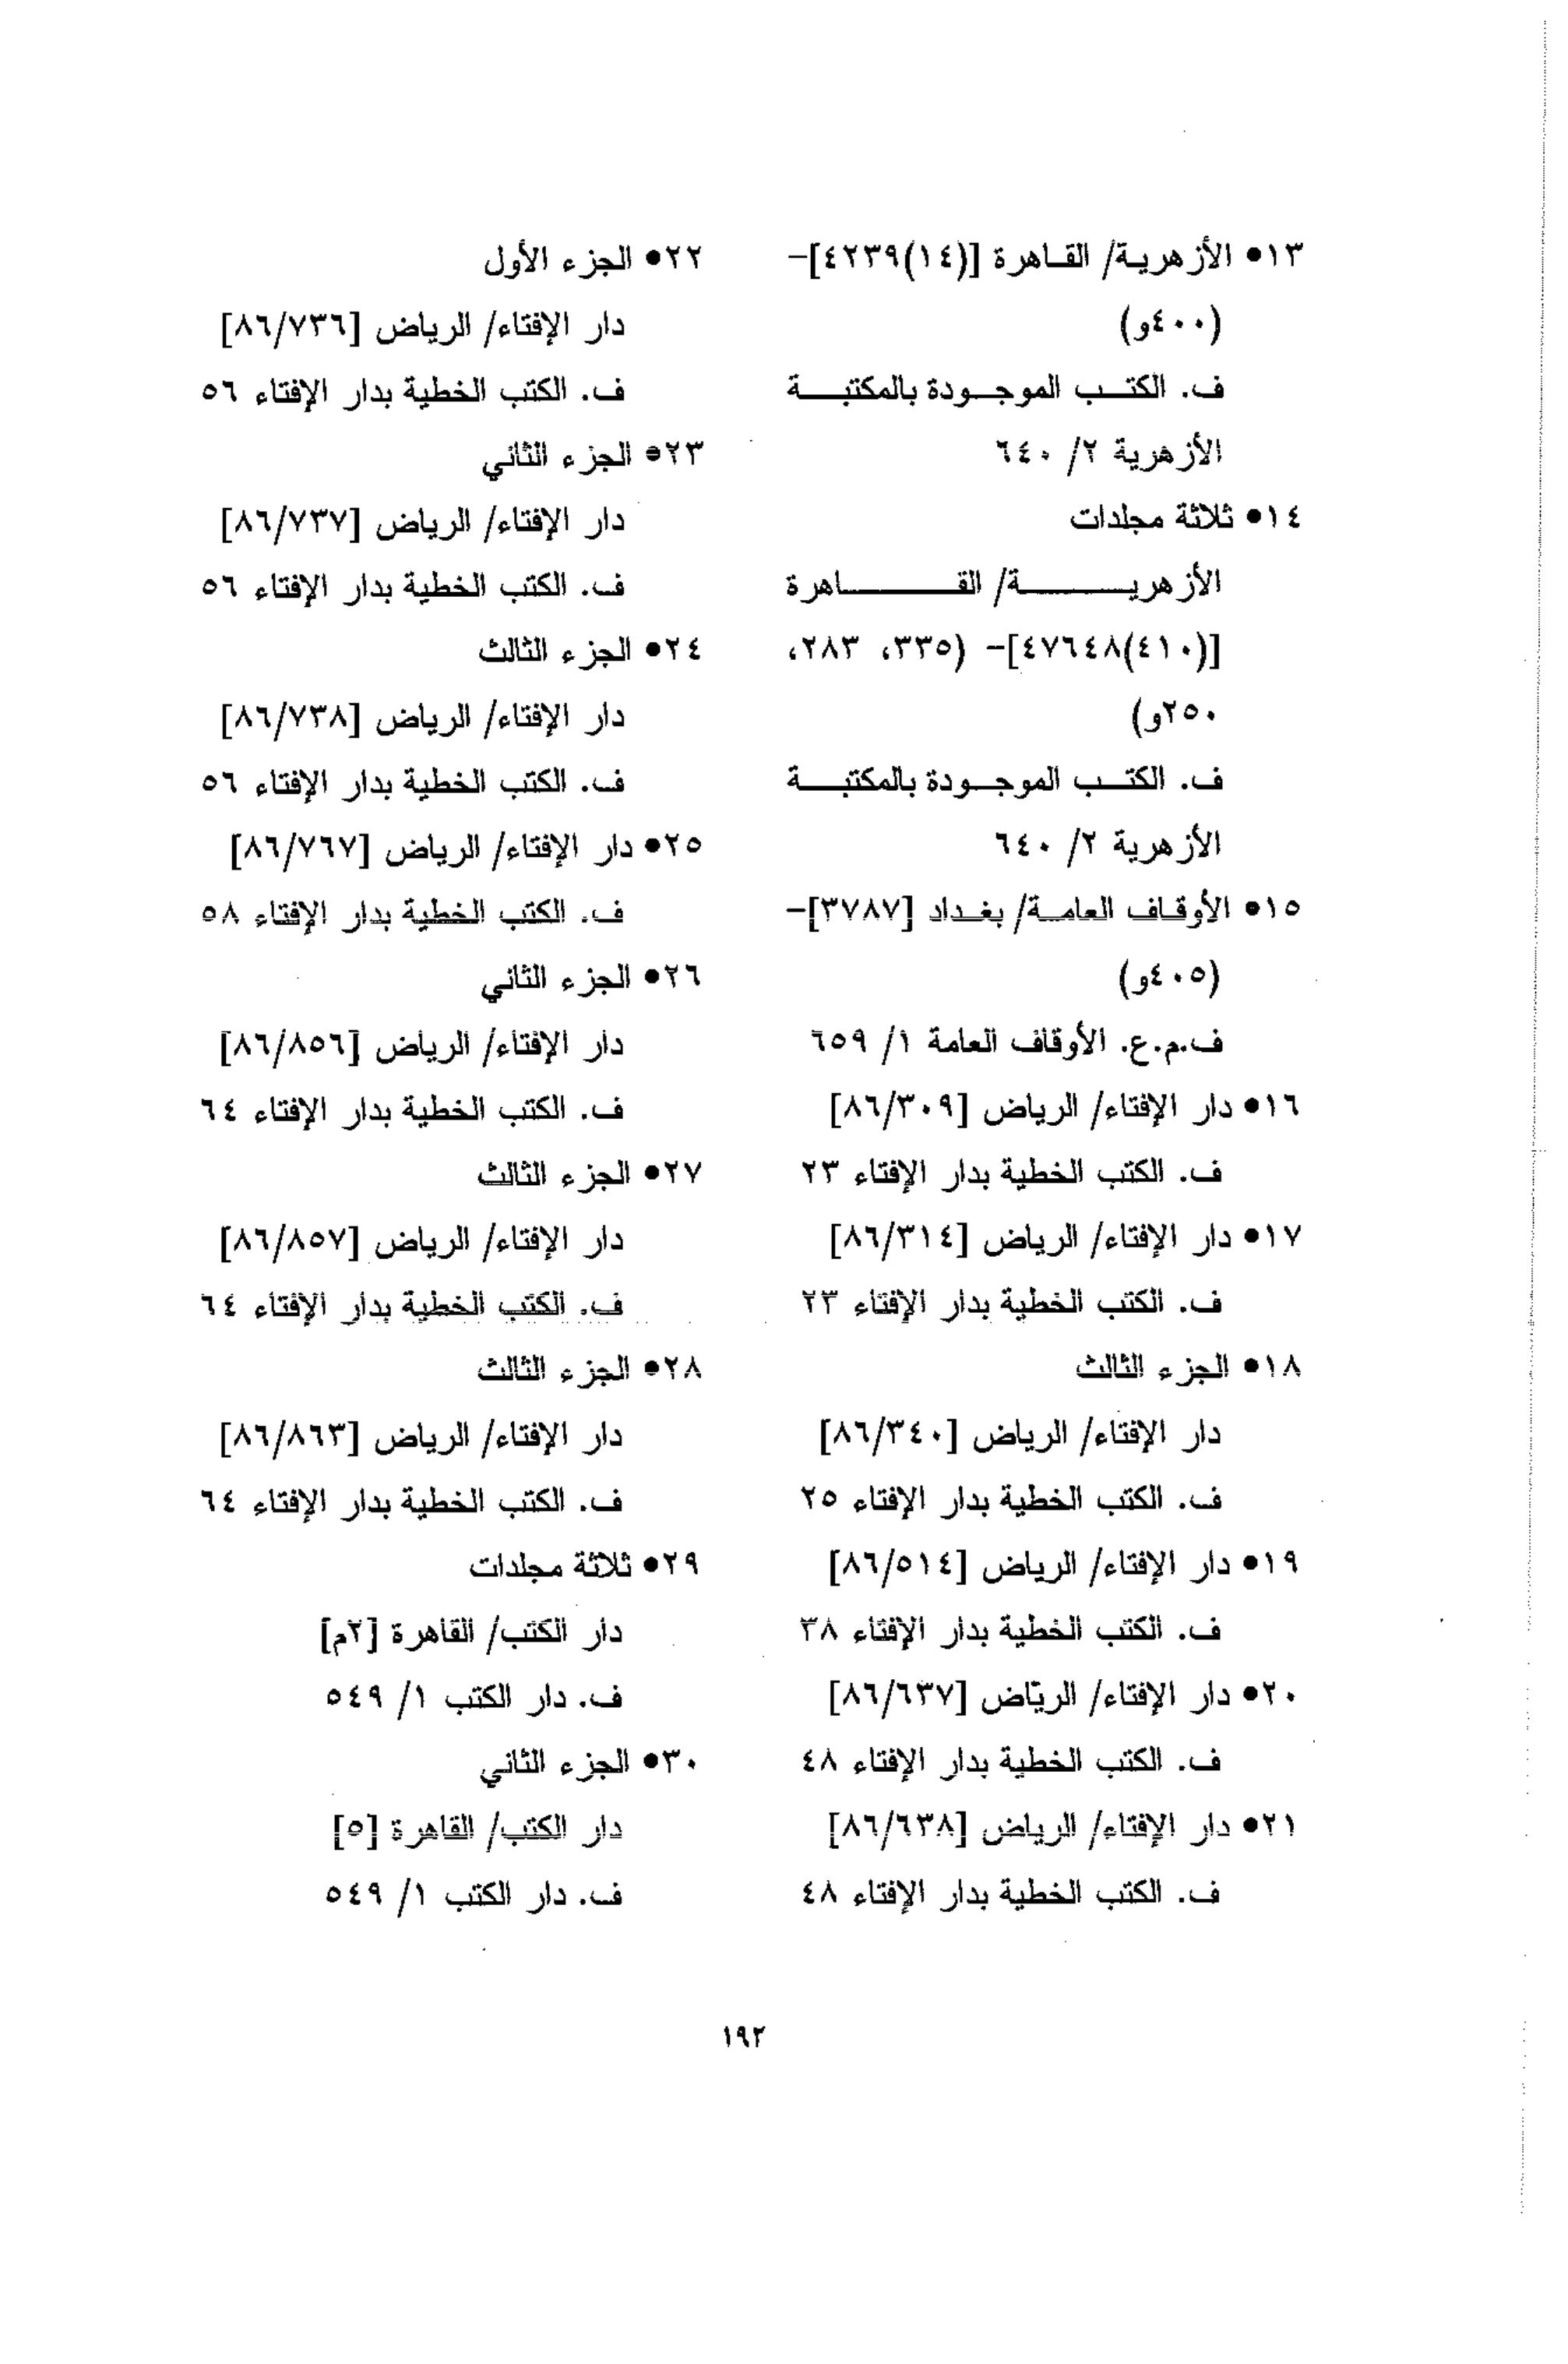 ١٣● الأزهرية/ القاهرة [(١٤)٤٢٣٩]-
(٤٠٠و)
ف. الكتب الموجودة بالمكتبة
الأزهرية ٢/ ٦٤٠
١٤● ثلاثة مجلدات
الأزهرية/ القاهرة
[(٤١٠)٤٧٦٤٨]- (٣٣٥، ٢٨٣،
٢٥٠و)
ف. الكتب الموجودة بالمكتبة
الأزهرية ٢/ ٦٤٠
١٥● الأوقاف العامة/ بغداد [٣٧٨٧]-
(٤٠٥و)
ف.م.ع. الأوقاف العامة ١/ ٦٥٩
١٦● دار الإفتاء/ الرياض [٨٦/٣٠٩]
ف. الكتب الخطية بدار الإفتاء ٢٣
١٧● دار الإفتاء/ الرياض [٨٦/٣١٤]
ف. الكتب الخطية بدار الإفتاء ٢٣
١٨● الجزء الثالث
دار الإفتاء/ الرياض [٨٦/٣٤٠]
ف. الكتب الخطية بدار الإفتاء ٢٥
١٩● دار الإفتاء/ الرياض [٨٦/٥١٤]
ف. الكتب الخطية بدار الإفتاء ٣٨
٢٠● دار الإفتاء/ الرياض [٨٦/٦٣٧]
ف. الكتب الخطية بدار الإفتاء ٤٨
٢١● دار الإفتاء/ الرياض [٨٦/٦٣٨]
ف. الكتب الخطية بدار الإفتاء ٤٨
٢٢● الجزء الأول
دار الإفتاء/ الرياض [٨٦/٧٣٦]
ف. الكتب الخطية بدار الإفتاء ٥٦
٢٣● الجزء الثاني
دار الإفتاء/ الرياض [٨٦/٧٣٧]
ف. الكتب الخطية بدار الإفتاء ٥٦
٢٤● الجزء الثالث
دار الإفتاء/ الرياض [٨٦/٧٣٨]
ف. الكتب الخطية بدار الإفتاء ٥٦
٢٥● دار الإفتاء/ الرياض [٨٦/٧٦٧]
ف. الكتب الخطية بدار الإفتاء ٥٨
٢٦● الجزء الثاني
دار الإفتاء/ الرياض [٨٦/٨٥٦]
ف. الكتب الخطية بدار الإفتاء ٦٤
٢٧● الجزء الثالث
دار الإفتاء/ الرياض [٨٦/٨٥٧]
ف. الكتب الخطية بدار الإفتاء ٦٤
٢٨● الجزء الثالث
دار الإفتاء/ الرياض [٨٦/٨٦٣]
ف. الكتب الخطية بدار الإفتاء ٦٤
٢٩● ثلاثة مجلدات
دار الكتب/ القاهرة [٢م]
ف. دار الكتب ١/ ٥٤٩
٣٠● الجزء الثاني
دار الكتب/ القاهرة [٥]
ف. دار الكتب ١/ ٥٤٩
١٩٢